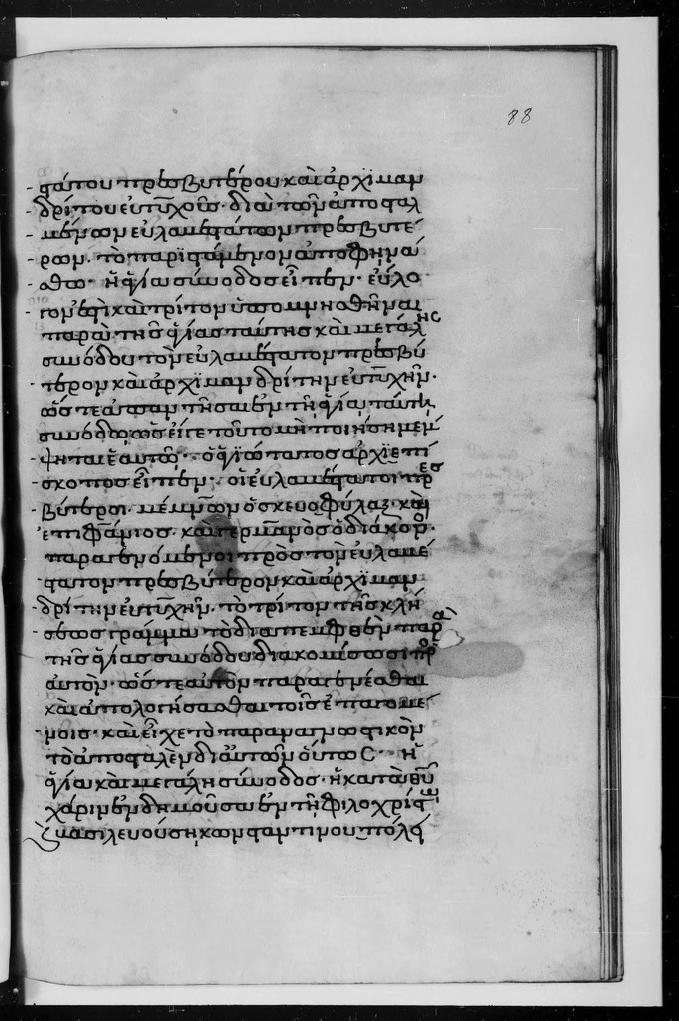 88
στάτου πρεσβυτέρου καὶ ἀρχιμαν
δρίτου εὐτυχοῦς· διὰ τῶν ἀποσταλ
μένων εὐλαβεστάτων πρεσβυτέ
ρων. τὸ παριστάμενον ἀποφήνα
σθω· ἡ ἁγία σύνοδος εἶπεν· εὔλο
γόν ἐστι καὶ τρίτον ὑπομνησθῆναι
παρὰ τῆς ἁγίας ταύτης καὶ μεγάλης
συνόδου τὸν εὐλαβέστατον πρεσβύ
τερον καὶ ἀρχιμανδρίτην εὐτυχῆν·
ὥστε ἀπαντῆσαι ἐν τῇ ἁγίᾳ ταύτῃ
συνόδῳ ὡς εἴγε τοῦτο μὴ ποιήση μέμ
ψηται ἑαυτῷ· ὁ ἁγιώτατος ἀρχιεπί
σκοπος εἶπεν· οἱ εὐλαβέστατοι πρεσ
βύτεροι. μέμνων ὁ σκευοφύλαξ· καὶ
ἐπιφάνιος· καὶ γερμανὸς ὁ διάκονος·
παραγενόμενοι πρὸς τὸν εὐλαβέ
στατον πρεσβύτερον καὶ ἀρχιμαν
δρίτην εὐτυχῆν. τὸ τρίτον τῆς κλή
σεως γράμμα τὸ διαπεμφθὲν παρὰ
τῆς ἁγίας συνόδου διακομίσωσι πρὸς
αὐτόν· ὥστε αὐτὸν παραγενέσθαι
καὶ ἀπολογήσασθαι τοῖς ἐπαγομέ
νοις· καὶ εἶχε τὸ παραναγνωστικὸν
τὸ ἀποσταλὲν δι αὐτῶν οὕτως· Ἡ
ἁγία καὶ μεγάλη σύνοδος· ἡ κατὰ θυ
χάριν ἐνδημοῦσα ἐν τῇ φιλοχρίστω
βασιλευούσῃ κωνσταντίνου πόλει